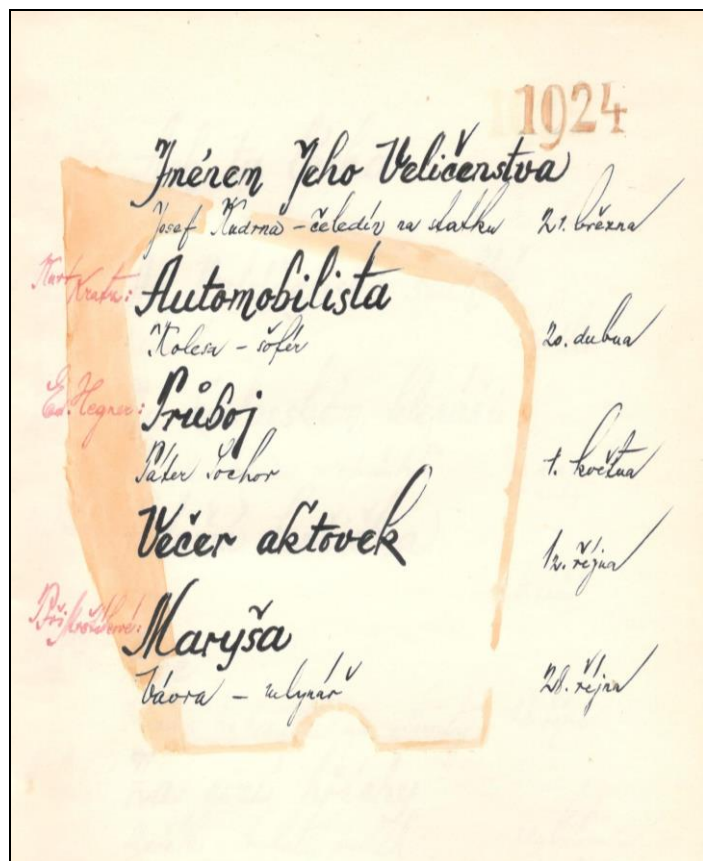 1924
Jménem Jeho Veličenstva
Josef Kudrna – čeledín na statku 21. března
Kurt Kraatz: Automobilista
Kolesa – šofér 20. dubna
Ed. Hegner: Průboj
Páter Sochor 1. května
Večer aktovek 12. října
Maryša
Vávra – mlynář 28. října